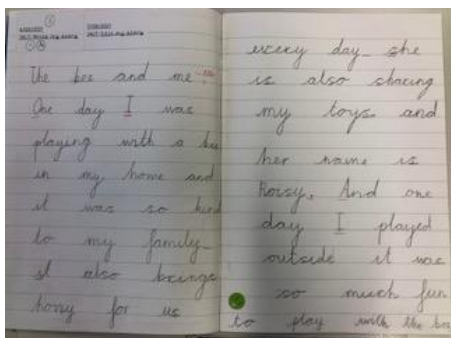 The bee and me
One day I was
playing with a be
in my home and
it was so kind
to my family.
it also brings
hony for us
every day. she
is also sharing
my toys. and
her name is
Roisy. And one
day I played
outside it was
so much fun
to play with the bee